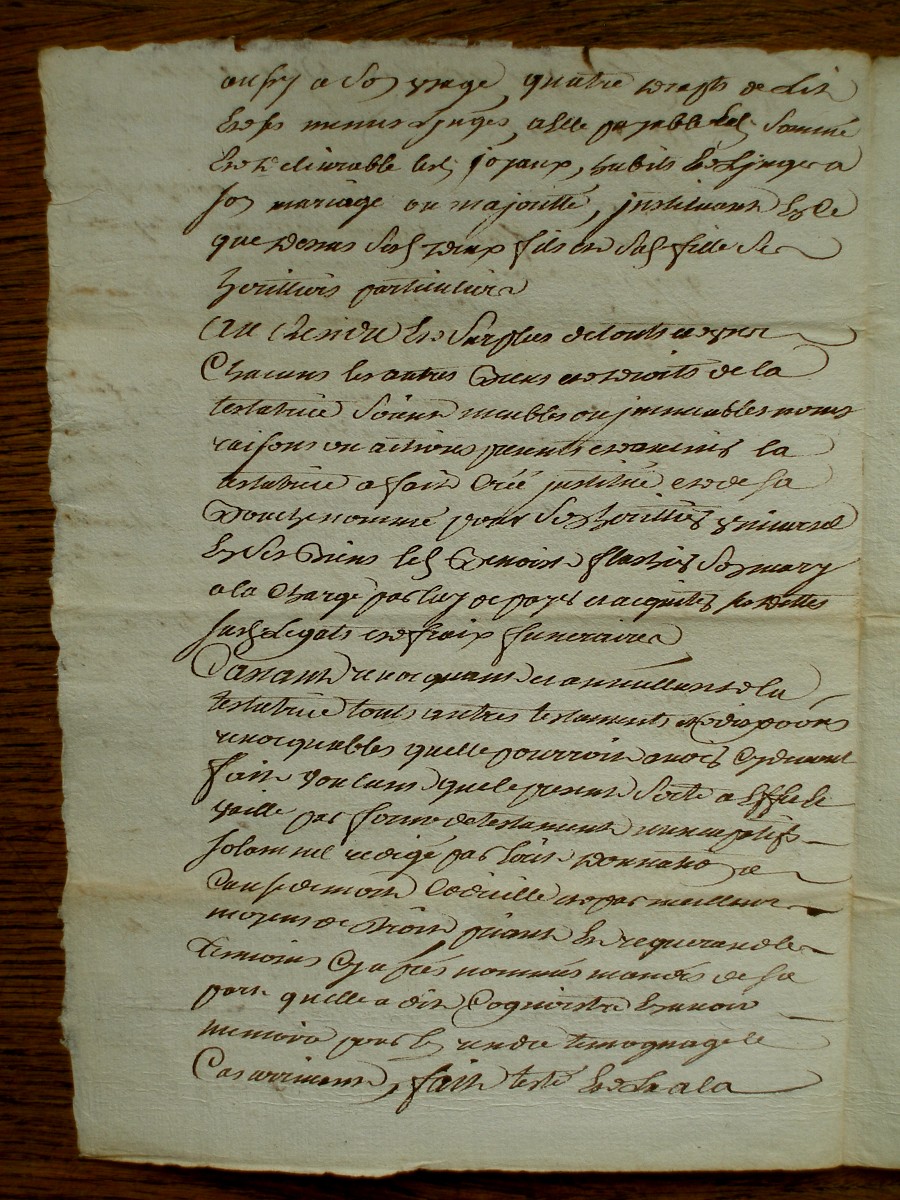 a son usage, quatre draps de lit
menus linges, a elle payable lad. somme
et delivrable lesd. joyaux, habits et linges a
son mariage ou majorité, instituant
que dessus sesd. deux fils et sad. fille ses
heritiers particuliers
Au residu et surplus de touts et uns
Chacuns les autres biens et droits de la
testatrice soient meubles ou immeubles noms
raisons ou actions presents et avenir la
testatrice a fait créé institué et de sa
bouche nommé pour ses heritier universel
en ses biens led. Benoist son mary
a la charge par luy de payer et acquiter ses dettes
susd. legats et fraix funeraires
Cassant revocquant et annullant la
testatrice touts autres testaments et dispoons
revocquables quelle pourroit avoir cy devant
fait voulant que le present sorte a effet et
vaille par forme de testament nuncupatif
solemnel redigé par ecrit donnation a
cause de mort codicille et par meilleur
moyens de droit priant et requerant les
temoins cy apres nommés mandés de sa
part quelle a dit cognoistre et avoir
memoire pour en rendre temognage le
Cas arrivant, fait testé et a la